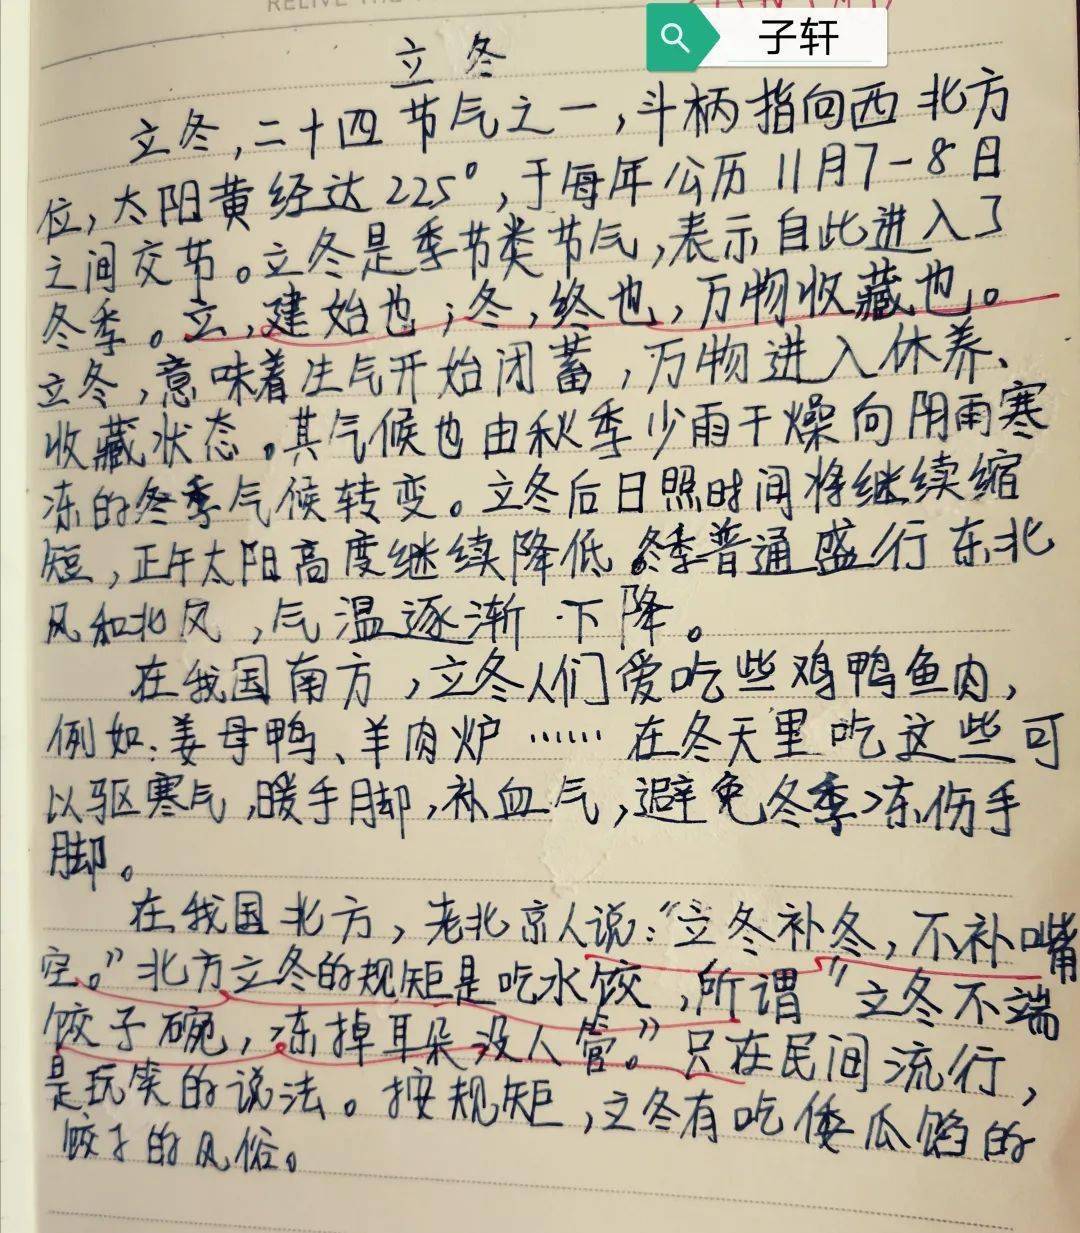 RELIVE THE
子轩
立冬
立冬,二十四节气之一,斗柄指向西北方
位,太阳黄经达225°,于每年公历11月7-8日
之间交节。立冬是季节类节气,表示自此进入了
冬季。立,建始也;冬,终也,万物收藏也。
立冬,意味着生气开始闭蓄,万物进入休养、
收藏状态。其气候也由秋季少雨干燥向阴雨寒
冻的冬季气候转变。立冬后日照时间将继续缩
短,正午太阳高度继续降低。冬季普通盛行东北
风和北风,气温逐渐下降。
在我国南方,立冬人们爱吃些鸡鸭鱼肉,
例如:姜母鸭、羊肉炉……在冬天里吃这些可
以驱寒气,暖手脚,补血气,避免冬季冻伤手
脚。
在我国北方,老北京人说:“立冬补冬,不补嘴
空。”北方立冬的规矩是吃水饺,所谓“立冬不端
饺子碗,冻掉耳朵没人管。”只在民间流行,
是玩笑的说法。按规矩,立冬有吃倭瓜馅的
饺子的风俗。